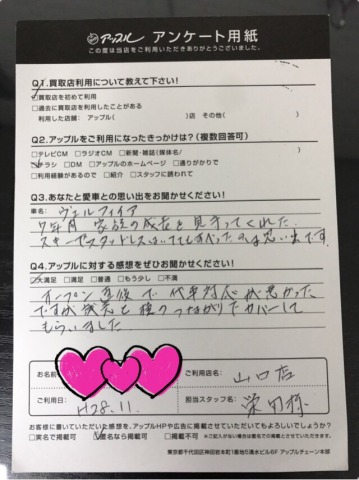 アップル アンケート用紙
この度は当店をご利用いただきありがとうございました。
Q1.買取店利用について教えて下さい!
□買取店を初めて利用
□過去に買取店を利用したことがある
利用した店舗: アップル( )店 その他( )
Q2.アップルをご利用になったきっかけは?(複数回答可)
□テレビCM □ラジオCM □新聞・雑誌(媒体名/ )
□チラシ □DM □アップルのホームページ □通りがかりで
□利用経験があるので □紹介 □スタッフに誘われて
Q3.あなたと愛車との思い出をお聞かせください!
車名: ヴェルファイア
7年間 家族の成長を見守ってくれた
スキーでスタッドレスはいても
思い出です。
Q4.アップルに対する感想をぜひお聞かせください!
□大満足 □満足 □普通 □もう少し □不満
オープン直後で代車対応が悪かった
ですが 横のつながりでカバーして
もらいました
お名前
ご利用店名: 山口店
ご利用日: H28.11.
担当スタッフ名: 様
お客様に書いていただいた感想を、アップルHPや広告に掲載させていただいてもよろしいでしょうか?
□実名で掲載可 □匿名なら掲載可 □掲載不可 ※ご記入がない場合は匿名での掲載とさせていただきます。
東京都千代田区神田岩本町1番地5清水ビル6F アップルチェーン本部